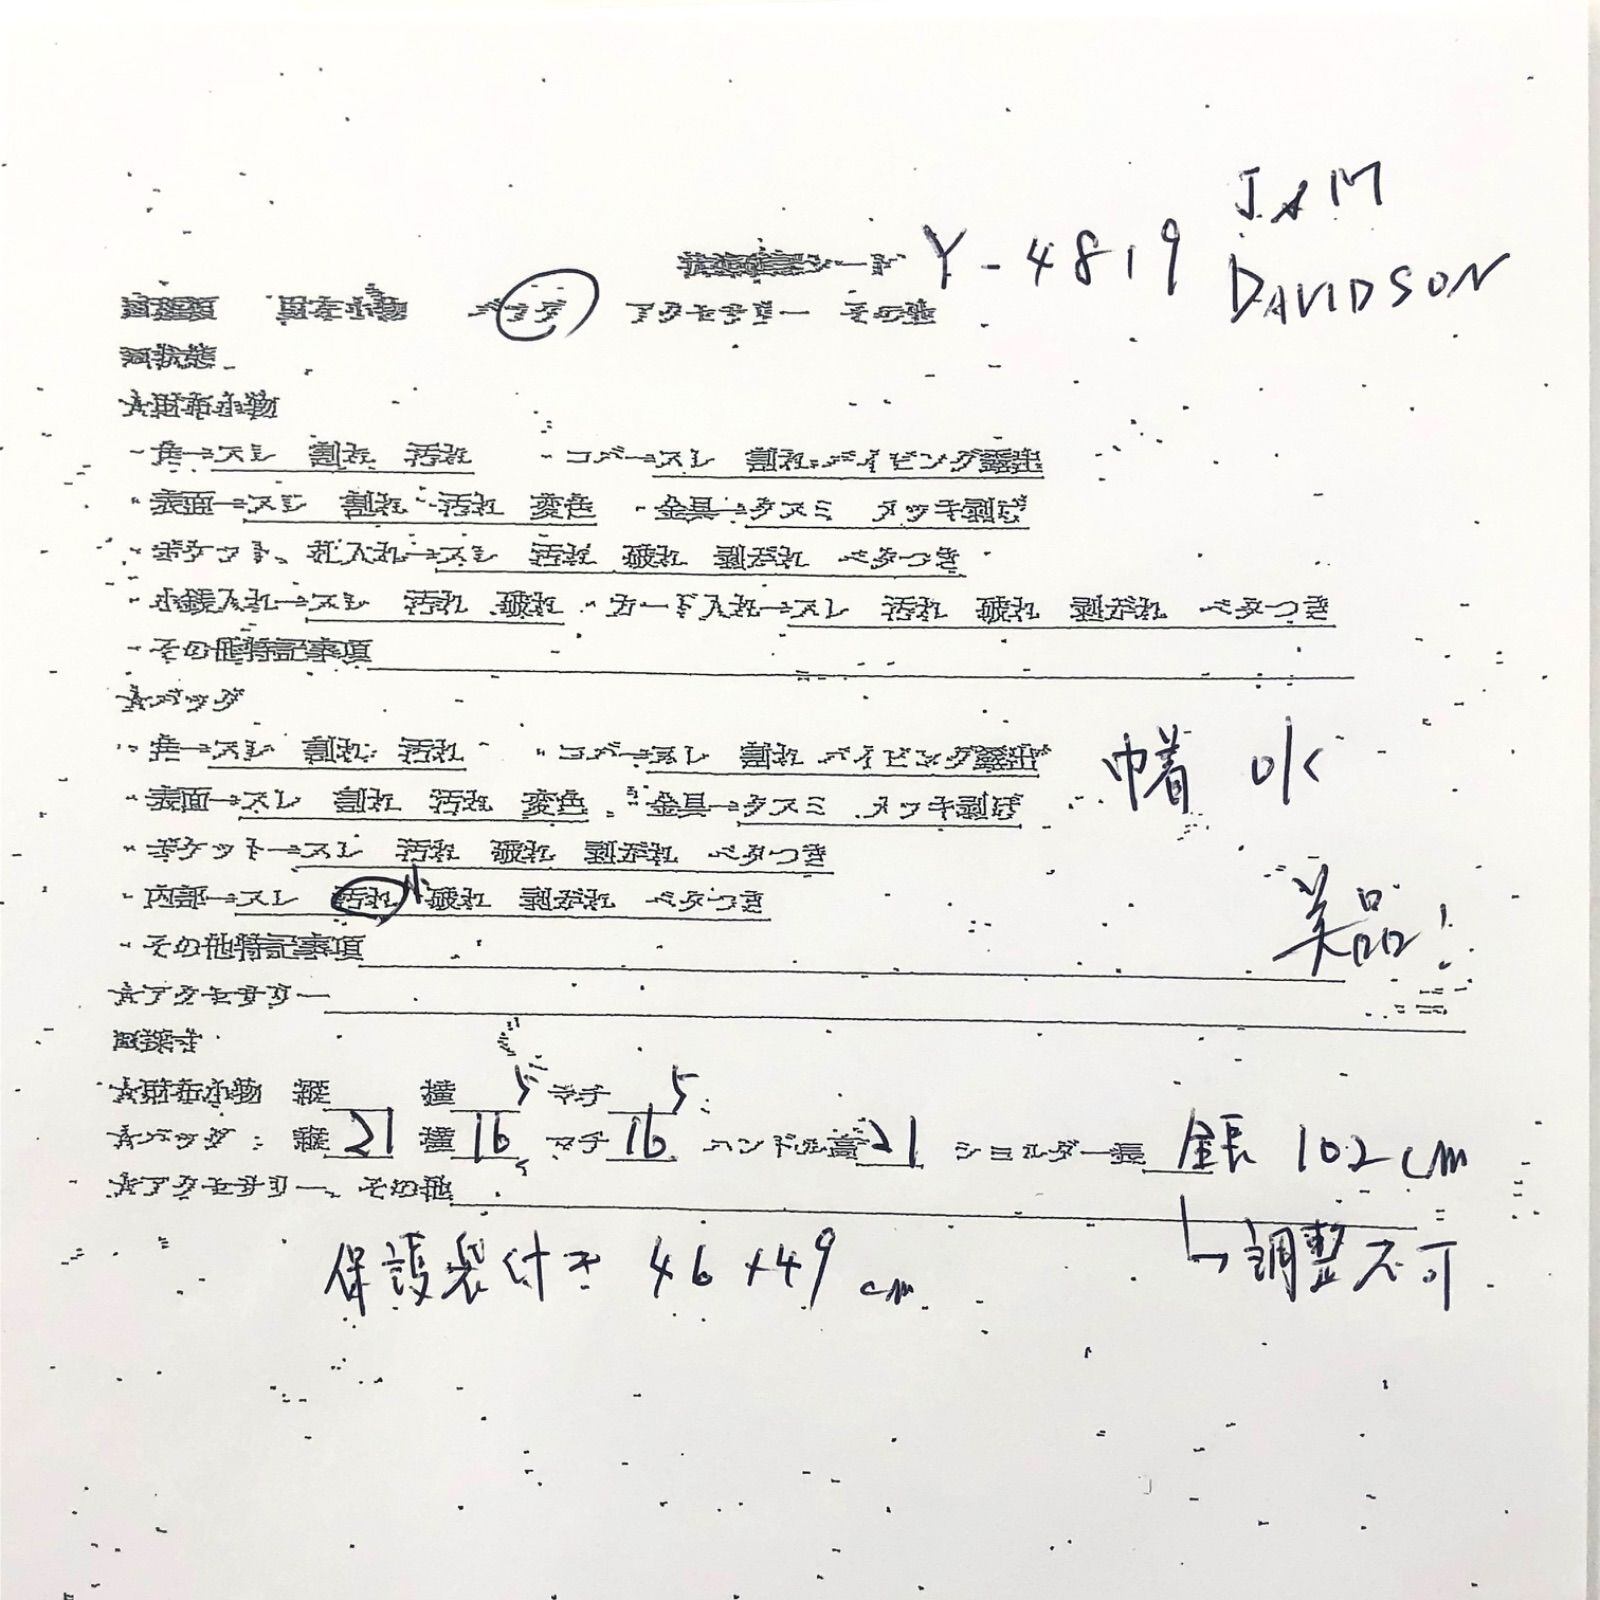 J & M
シート Y-4819 DAVIDSON
財布小物 バッグ アクセサリー その他
状態
☆財布小物
・角→スレ 割れ 汚れ ・コバ→スレ 割れ パイピング露出
・表面→スレ 割れ 汚れ 変色 ・金具→クスミ メッキ剥げ
・ポケット、札入れ→スレ 汚れ 破れ 剥がれ ベタつき
・小銭入れ→スレ 汚れ 破れ ・カード入れ→スレ 汚れ 破れ 剥がれ ベタつき
・その他特記事項
☆バッグ
・角→スレ 割れ 汚れ ・コバ→スレ 割れ パイピング露出
・表面→スレ 割れ 汚れ 変色 ・金具→クスミ メッキ剥げ
巾着 OK
・ポケット→スレ 汚れ 破れ 剥がれ ベタつき
・内部→スレ 汚れ 小 破れ 剥がれ ベタつき
美品!
・その他特記事項
☆アクセサリー
採寸
☆財布小物 縦 横 マチ
☆バッグ:縦 21 横 16 マチ 16 ハンドル高 21 ショルダー長 全長 102cm
☆アクセサリー、その他
↳調整不可
保護袋付き 46×49cm